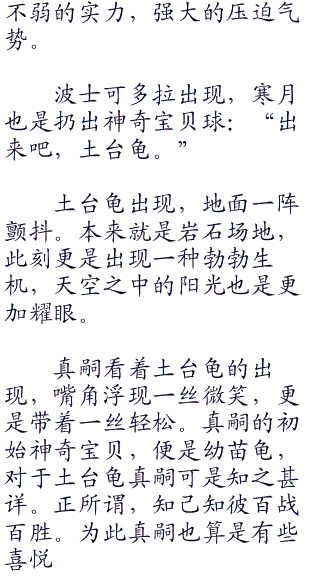 不弱的实力，强大的压迫气
势。
波士可多拉出现，寒月
也是扔出神奇宝贝球：“出
来吧，土台龟。”
土台龟出现，地面一阵
颤抖。本来就是岩石场地，
此刻更是出现一种勃勃生
机，天空之中的阳光也是更
加耀眼。
真嗣看着土台龟的出
现，嘴角浮现一丝微笑，更
是带着一丝轻松。真嗣的初
始神奇宝贝，便是幼苗龟，
对于土台龟真嗣可是知之甚
详。正所谓，知己知彼百战
百胜。为此真嗣也算是有些
喜悦